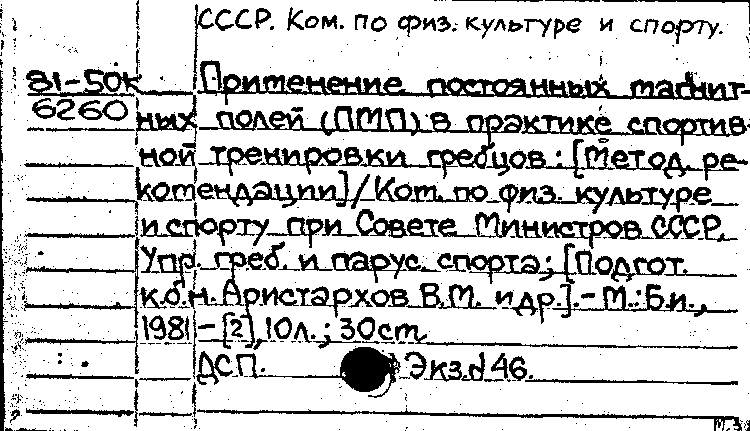 СССР. Ком. по физ. культуре и спорту.
81-50к Применение постоянных магнит-
6260 ных полей (ПМП) в практике спортив-
ной тренировки гребцов: [Метод. ре-
комендации]/Ком. по физ. культуре
и спорту при Совете Министров СССР.
Упр. греб. и парус. спорта; [Подгот.
к.б.н. Аристархов В.М. и др.].-М.: Б.и.,
1981 - [2], 10л.; 30см
ДСП. Экз. 46.